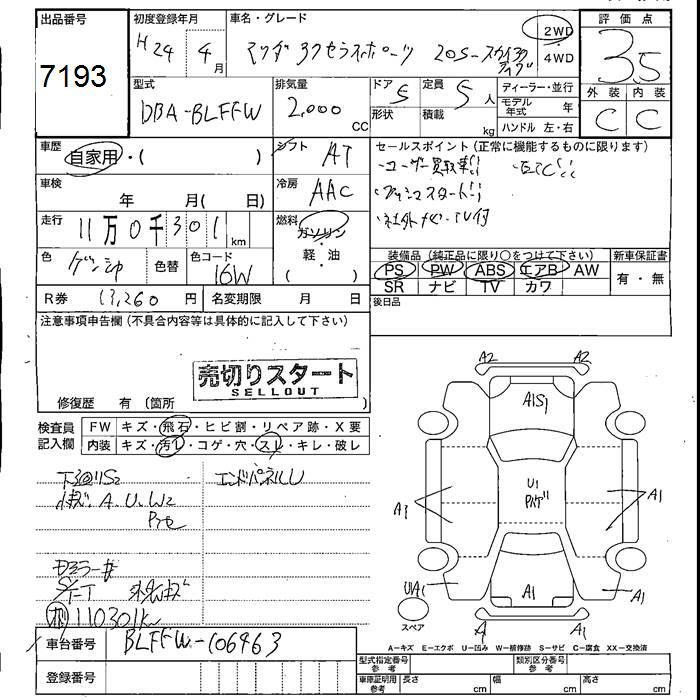 出品番号
7193
初度登録年月
H24 4月
車名・グレード
マツダ アクセラスポーツ 20S-スカイアクティブ
2WD
・
4WD
評価点
3.5
外装 内装
C C
型式
DBA-BLFFW
排気量
2,000 CC
ドア 5
形状
定員 5人
積載 kg
ディーラー・並行
モデル年式 年
ハンドル 左・右
車歴
自家用・( )
シフト AT
セールスポイント (正常に機能するものに限ります)
・ユーザー買取車!! ・ETC!!
・プッシュスタート!!
・社外ナビ・TV付
車検 年 月( 日)
冷房 AAC
走行 11万0千301km
燃料 ガソリン
・
軽・油
( )
色
色替
色コード 16W
装備品 (純正品に限り○をつけて下さい)
PS PW ABS エアB AW
SR ナビ TV カワ
新車保証書
有・無
R券 13,260円
名変期限 月 日
後日品
注意事項申告欄 (不具合内容等は具体的に記入して下さい)
売切りスタート
SELLOUT
修復歴 有 (箇所
検査員記入欄
FW キズ・飛石・ヒビ割・リペア跡・X要
内装 キズ・汚レ・コゲ・穴・スレ・キレ・破レ
下回りS2
小キズ. A. U. W2
エンドパネルU
110301K
A2 A2
A1S1
U1
A1 A1
UA1 A1 A1
A A1
スペア
A－キズ E－エクボ U－凹み W－補修跡 S－サビ C－腐食 XX－交換済
車台番号 BLFFW-106463
登録番号
型式指定番号 参考
類別区分番号 参考
車庫証明用 参考 長さ cm 幅 cm 高さ cm